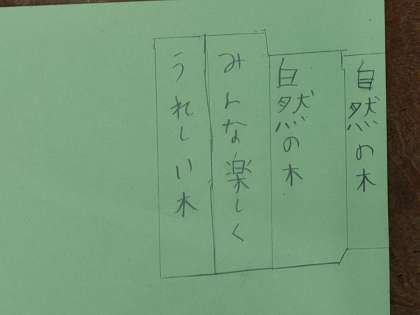 自然の木
自然の木
みんな楽しく
うれしい木